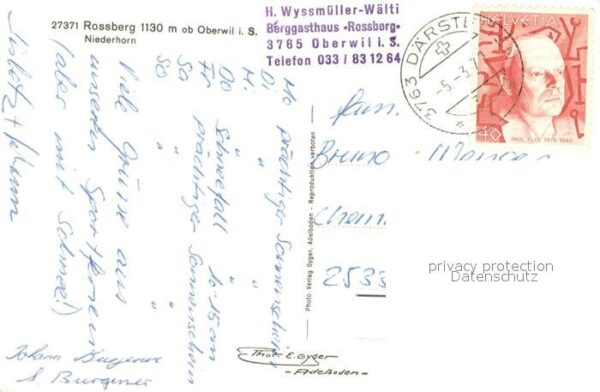 27371 Rossberg 1130 m ob Oberwil i. S.
Niederhorn
H. Wyssmüller-Wälti
Berggasthaus «Rossberg»
3765 Oberwil i. S.
Telefon 033 / 83 12 64
3763 DÄRSTETTEN
-5.-3.79
HELVETIA
PAUL KLEE 1879-1940
Mo prächtiger Sonnenschein
Di " "
Mi " "
Do Schneefall 10-15 cm
Fr prächtiger Sonnenschein
Sa "
So "
Viele Grüsse aus
unseren Sportferien
(aber mit Schnee!)
Johann Burgener
Burgener
Fam.
Bruno
2533
Photo-Verlag Gyger, Adelboden - Reproduktion verboten
Phot. E. Gyger
-Adelboden-
privacy protection
Datenschutz